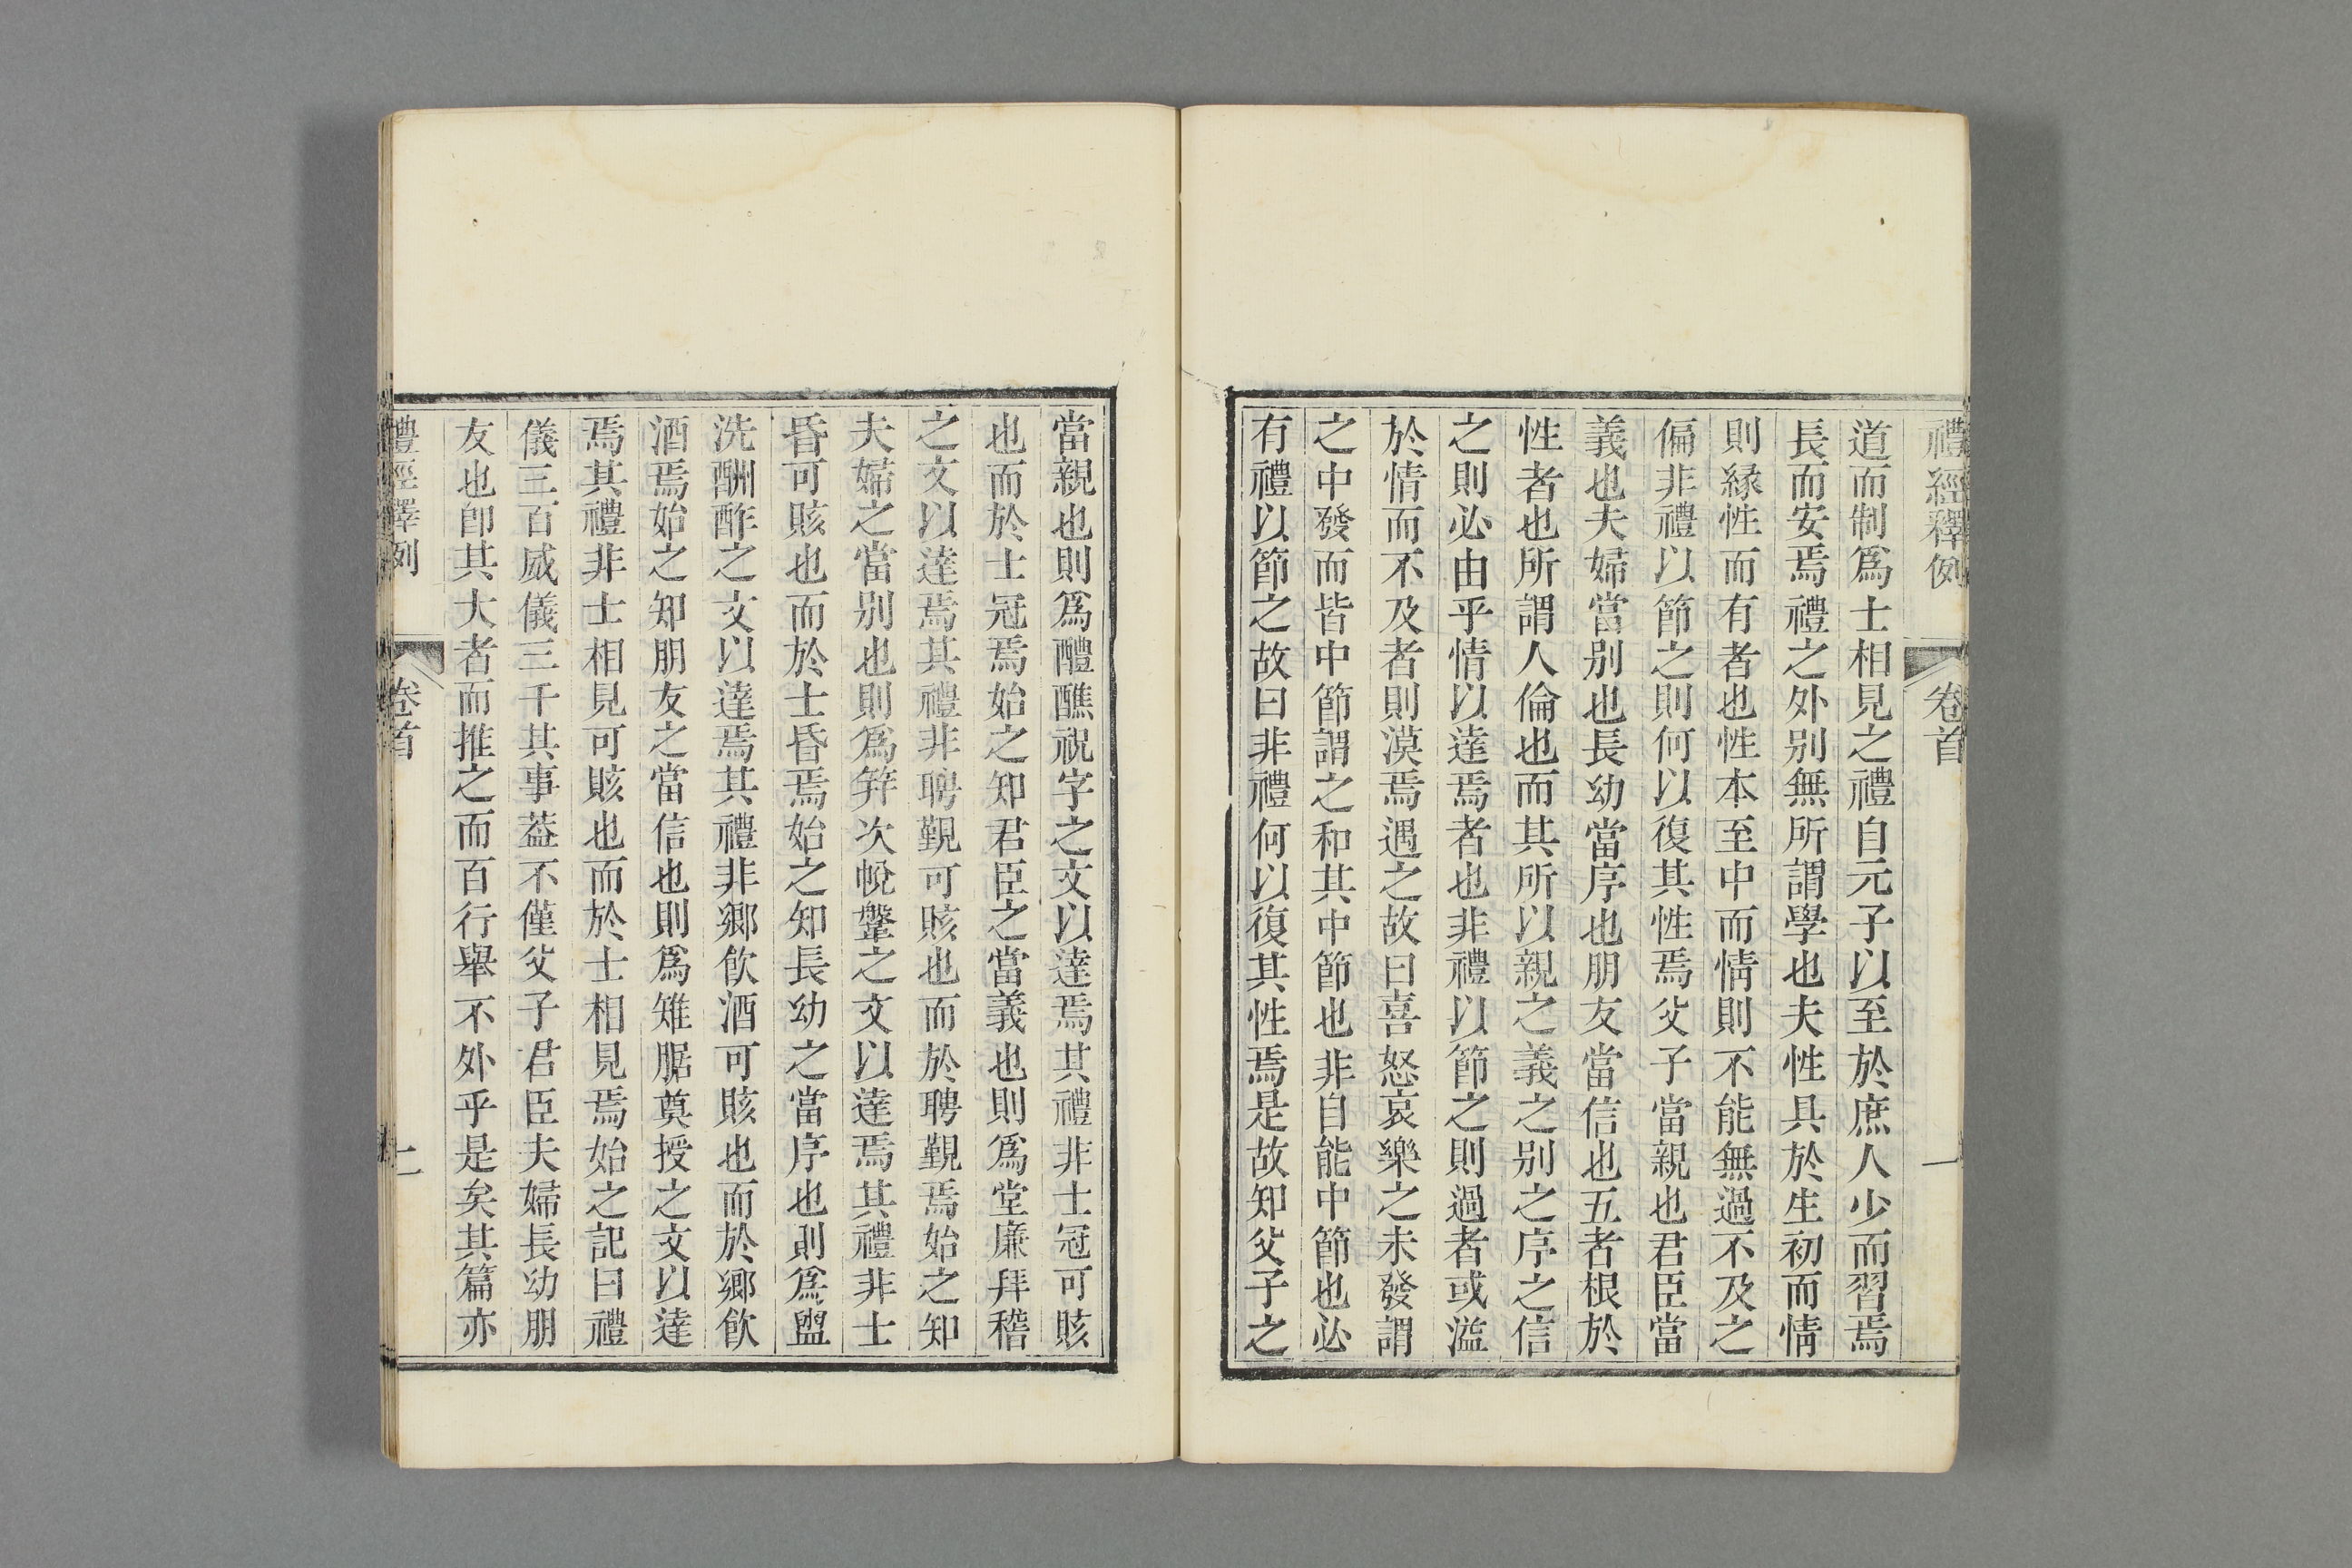 禮經釋例 卷首 一
道而制爲士相見之禮自元子以至於庶人少而習焉
長而安焉禮之外别無所謂學也夫性具於生初而情
則緣性而有者也性本至中而情則不能無過不及之
偏非禮以節之則何以復其性焉父子當親也君臣當
義也夫婦當别也長幼當序也朋友當信也五者根於
性者也所謂人倫也而其所以親之義之别之序之信
之則必由乎情以達焉者也非禮以節之則過者或溢
於情而不及者則漠焉遇之故曰喜怒哀樂之未發謂
之中發而皆中節謂之和其中節也非自能中節也必
有禮以節之故曰非禮何以復其性焉是故知父子之
當親也則爲醴醮祝字之文以達焉其禮非士冠可賅
也而於士冠焉始之知君臣之當義也則爲堂廉拜稽
之文以達焉其禮非聘覲可賅也而於聘覲焉始之知
夫婦之當别也則爲笲次帨鞶之文以達焉其禮非士
昏可賅也而於士昏焉始之知長幼之當序也則爲盥
洗酬酢之文以達焉其禮非鄉飲酒可賅也而於鄉飲
酒焉始之知朋友之當信也則爲雉腒奠授之文以達
焉其禮非士相見可賅也而於士相見焉始之記曰禮
儀三百威儀三千其事葢不僅父子君臣夫婦長幼朋
友也卽其大者而推之而百行舉不外乎是矣其篇亦
禮經釋例 卷首 二